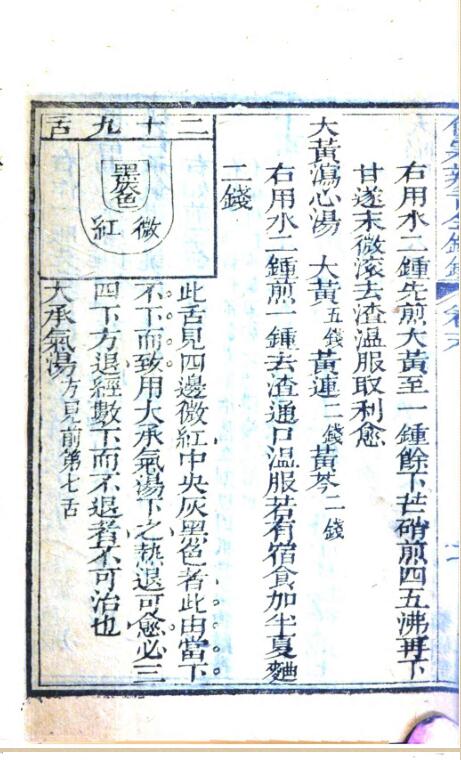 右用水二鍾先煎大黃至一鍾餘下芒硝煎四五沸再下
甘遂末微滾去渣溫服取利愈
大黃瀉心湯 大黃五錢黃連二錢黃芩二錢
右用水二鍾煎一鍾去渣通口溫服若有宿食加半夏麯
二錢
二十九舌
黑灰色
微紅
此舌見四邊微紅中央灰黑色者此由當下
不下而致用大承氣湯下之熱退可愈必三
四下方退經數下而不退者不可治也
大承氣湯方見前第七舌